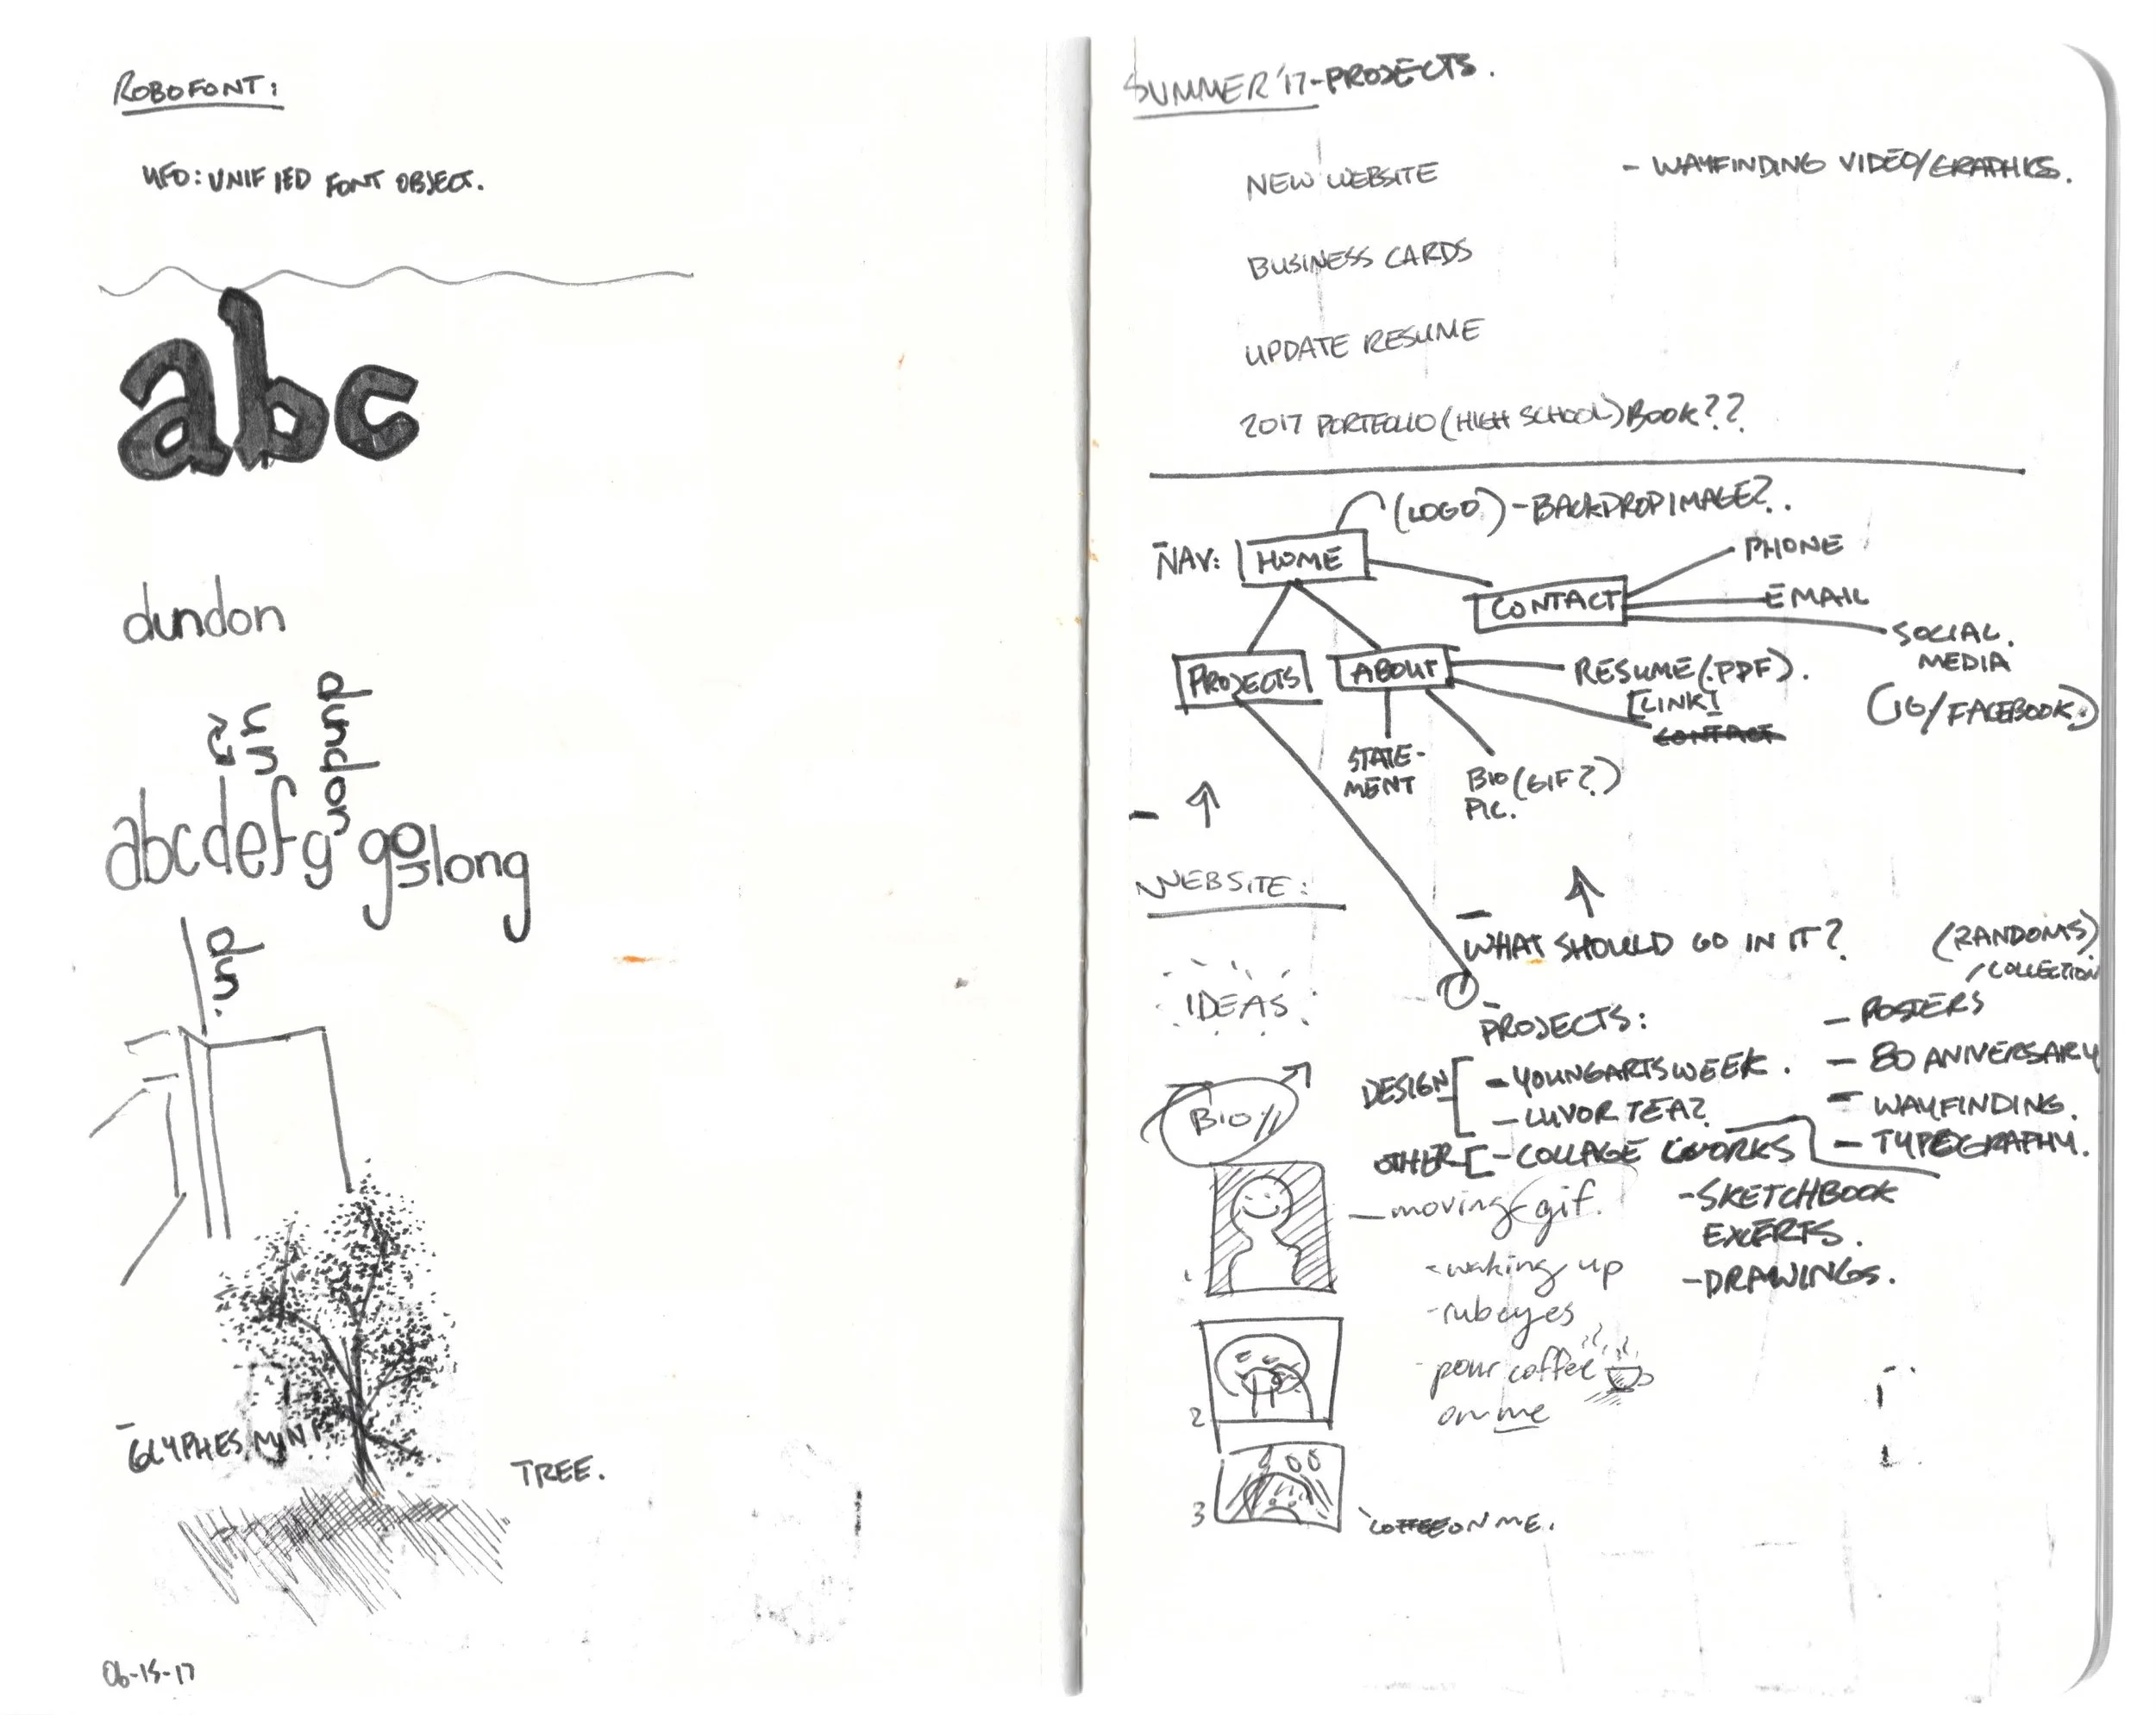 ROBOFONT:
UFO: UNIFIED FONT OBJECT.
abc
dundon
un
un
dundon
abcdefg golong
dun.
GLYPHES
TREE.
06-15-17
SUMMER '17-PROJECTS.
NEW WEBSITE
- WAYFINDING VIDEO/GRAPHICS.
BUSINESS CARDS
UPDATE RESUME
2017 PORTFOLIO (HIGH SCHOOL) BOOK??
(LOGO) - BACKDROP IMAGE?.
NAV: HOME
PHONE
CONTACT
EMAIL
SOCIAL.
MEDIA
(IG/FACEBOOK.)
PROJECTS
ABOUT
RESUME (.PDF).
[LINK]
CONTACT
STATE-
MENT
BIO (GIF?)
PIC.
WEBSITE:
- WHAT SHOULD GO IN IT?
(RANDOMS)
/COLLECTION
IDEAS
PROJECTS:
- POSTERS
DESIGN [ - YOUNGARTS WEEK.
- 80 ANIVERSARY
- LUVOR TEA?
- WAYFINDING.
OTHER [ - COLLAGE WORKS
- TYPOGRAPHY.
BIO//
- moving gif.
- SKETCHBOOK
EXCERTS.
- waking up
- DRAWINGS.
- rub eyes
- pour coffee
on me
1
2
3
COFFEE ON ME.